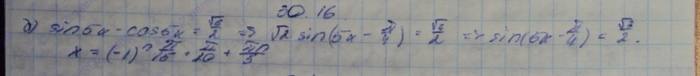 20.16
б) sin5x - cos5x = √2/2 => √2 sin(5x - π/4) = √2/2 => sin(5x - π/4) = √2/2.
x = (-1)ⁿ π/15 + π/20 + πn/5